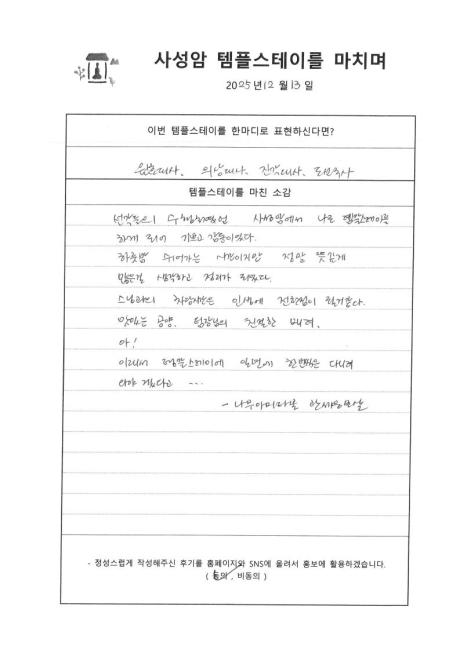 사성암 템플스테이를 마치며
2025년 12월 13일
이번 템플스테이를 한마디로 표현하신다면?
원효대사, 의상대사, 진각대사, 도선국사
템플스테이를 마친 소감
선각들의 수행하였던 사성암에서 나도 템플스테이를
하게 되어 기쁘고 감동이었다.
하룻밤 쉬어가는 시간이지만 정말 뜻깊게
많은걸 생각하고 정리가 되었다.
스님과의 차담시간은 인생에 전환점이 될거같다.
맛있는 공양, 팀장님의 친절한 배려,
아!
이래서 템플스테이에 일년에 한번씩은 다녀
와야 겠다고 ---
- 나무아미타불 관세음보살
- 정성스럽게 작성해주신 후기를 홈페이지와 SNS에 올려서 홍보에 활용하겠습니다.
( 동의 , 비동의 )